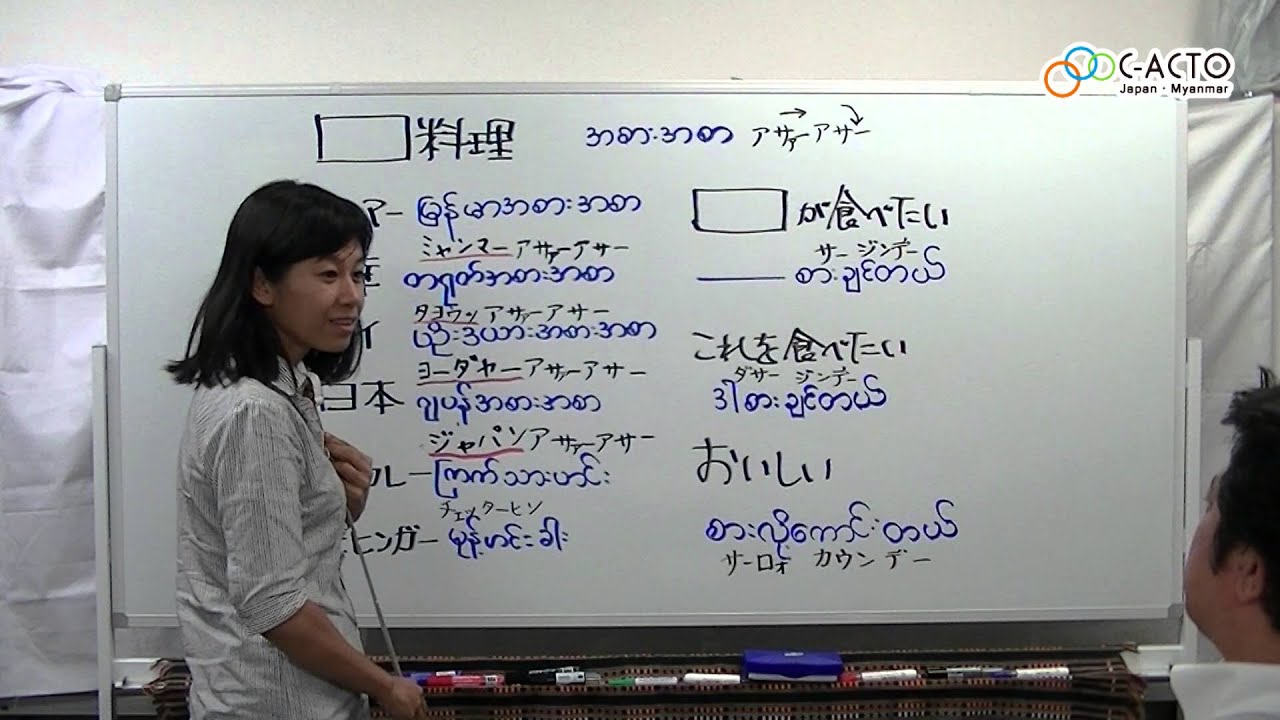 C-ACTO
Japan・Myanmar
料理 အစားအစာ アサァーアサー
アー မြန်မာအစားအစာ
ミャンマーアサァーアサー
တရုတ်အစားအစာ
タヨウッアサァーアサー
イ ယိုးဒယားအစားအစာ
ヨーダヤーアサァーアサー
日本 ဂျပန်အစားအစာ
ジャパンアサァーアサー
カレー ကြက်သားဟင်း
チェッターヒン
ヒンガー မုန့်ဟင်းခါး
が食べたい
サージンデー
စားချင်တယ်
これを食べたい
ダサージンデー
ဒါစားချင်တယ်
おいしい
စားလို့ကောင်းတယ်
サーロォカウンデー